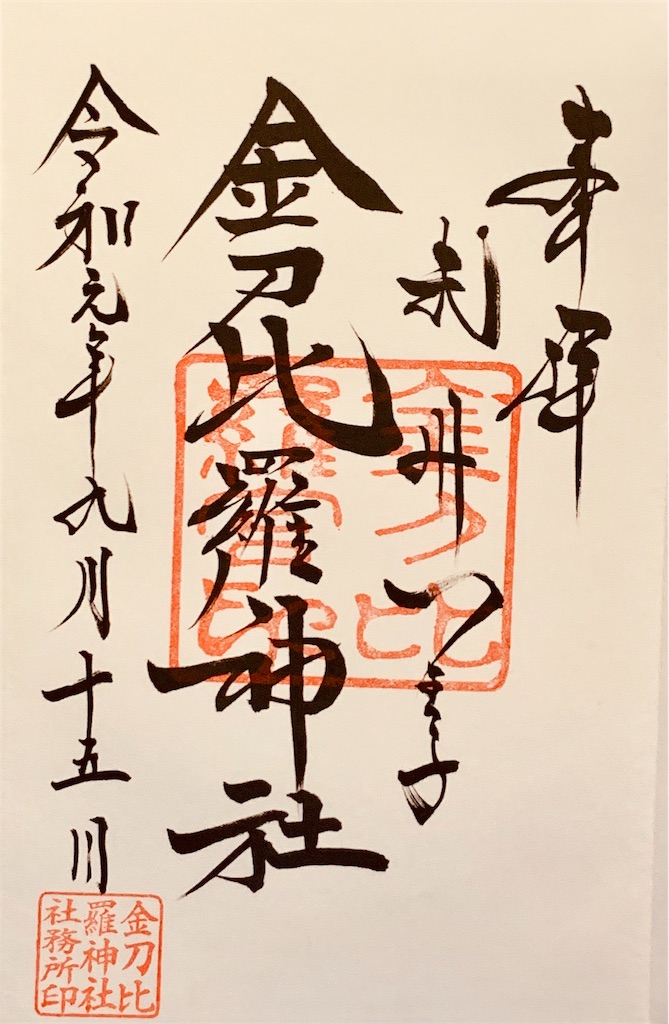 奉拝
金刀比羅神社
令和元年九月十五日
金刀比
羅宮印
金刀比
羅神社
社務所印